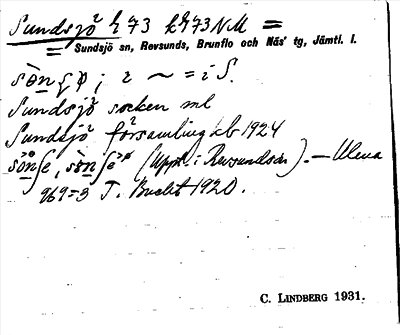 Sundsjö h 73 kh 73 NM =
= Sundsjö sn, Revsunds, Brunflo och Näs' tg, Jämtl. l.
i ~ = i S.
Sundsjö socken ml
Sundsjö församling kb 1924
(Uppt. i Revsundssn). —
969=3 T. Bucht 1920.
C. LINDBERG 1931.